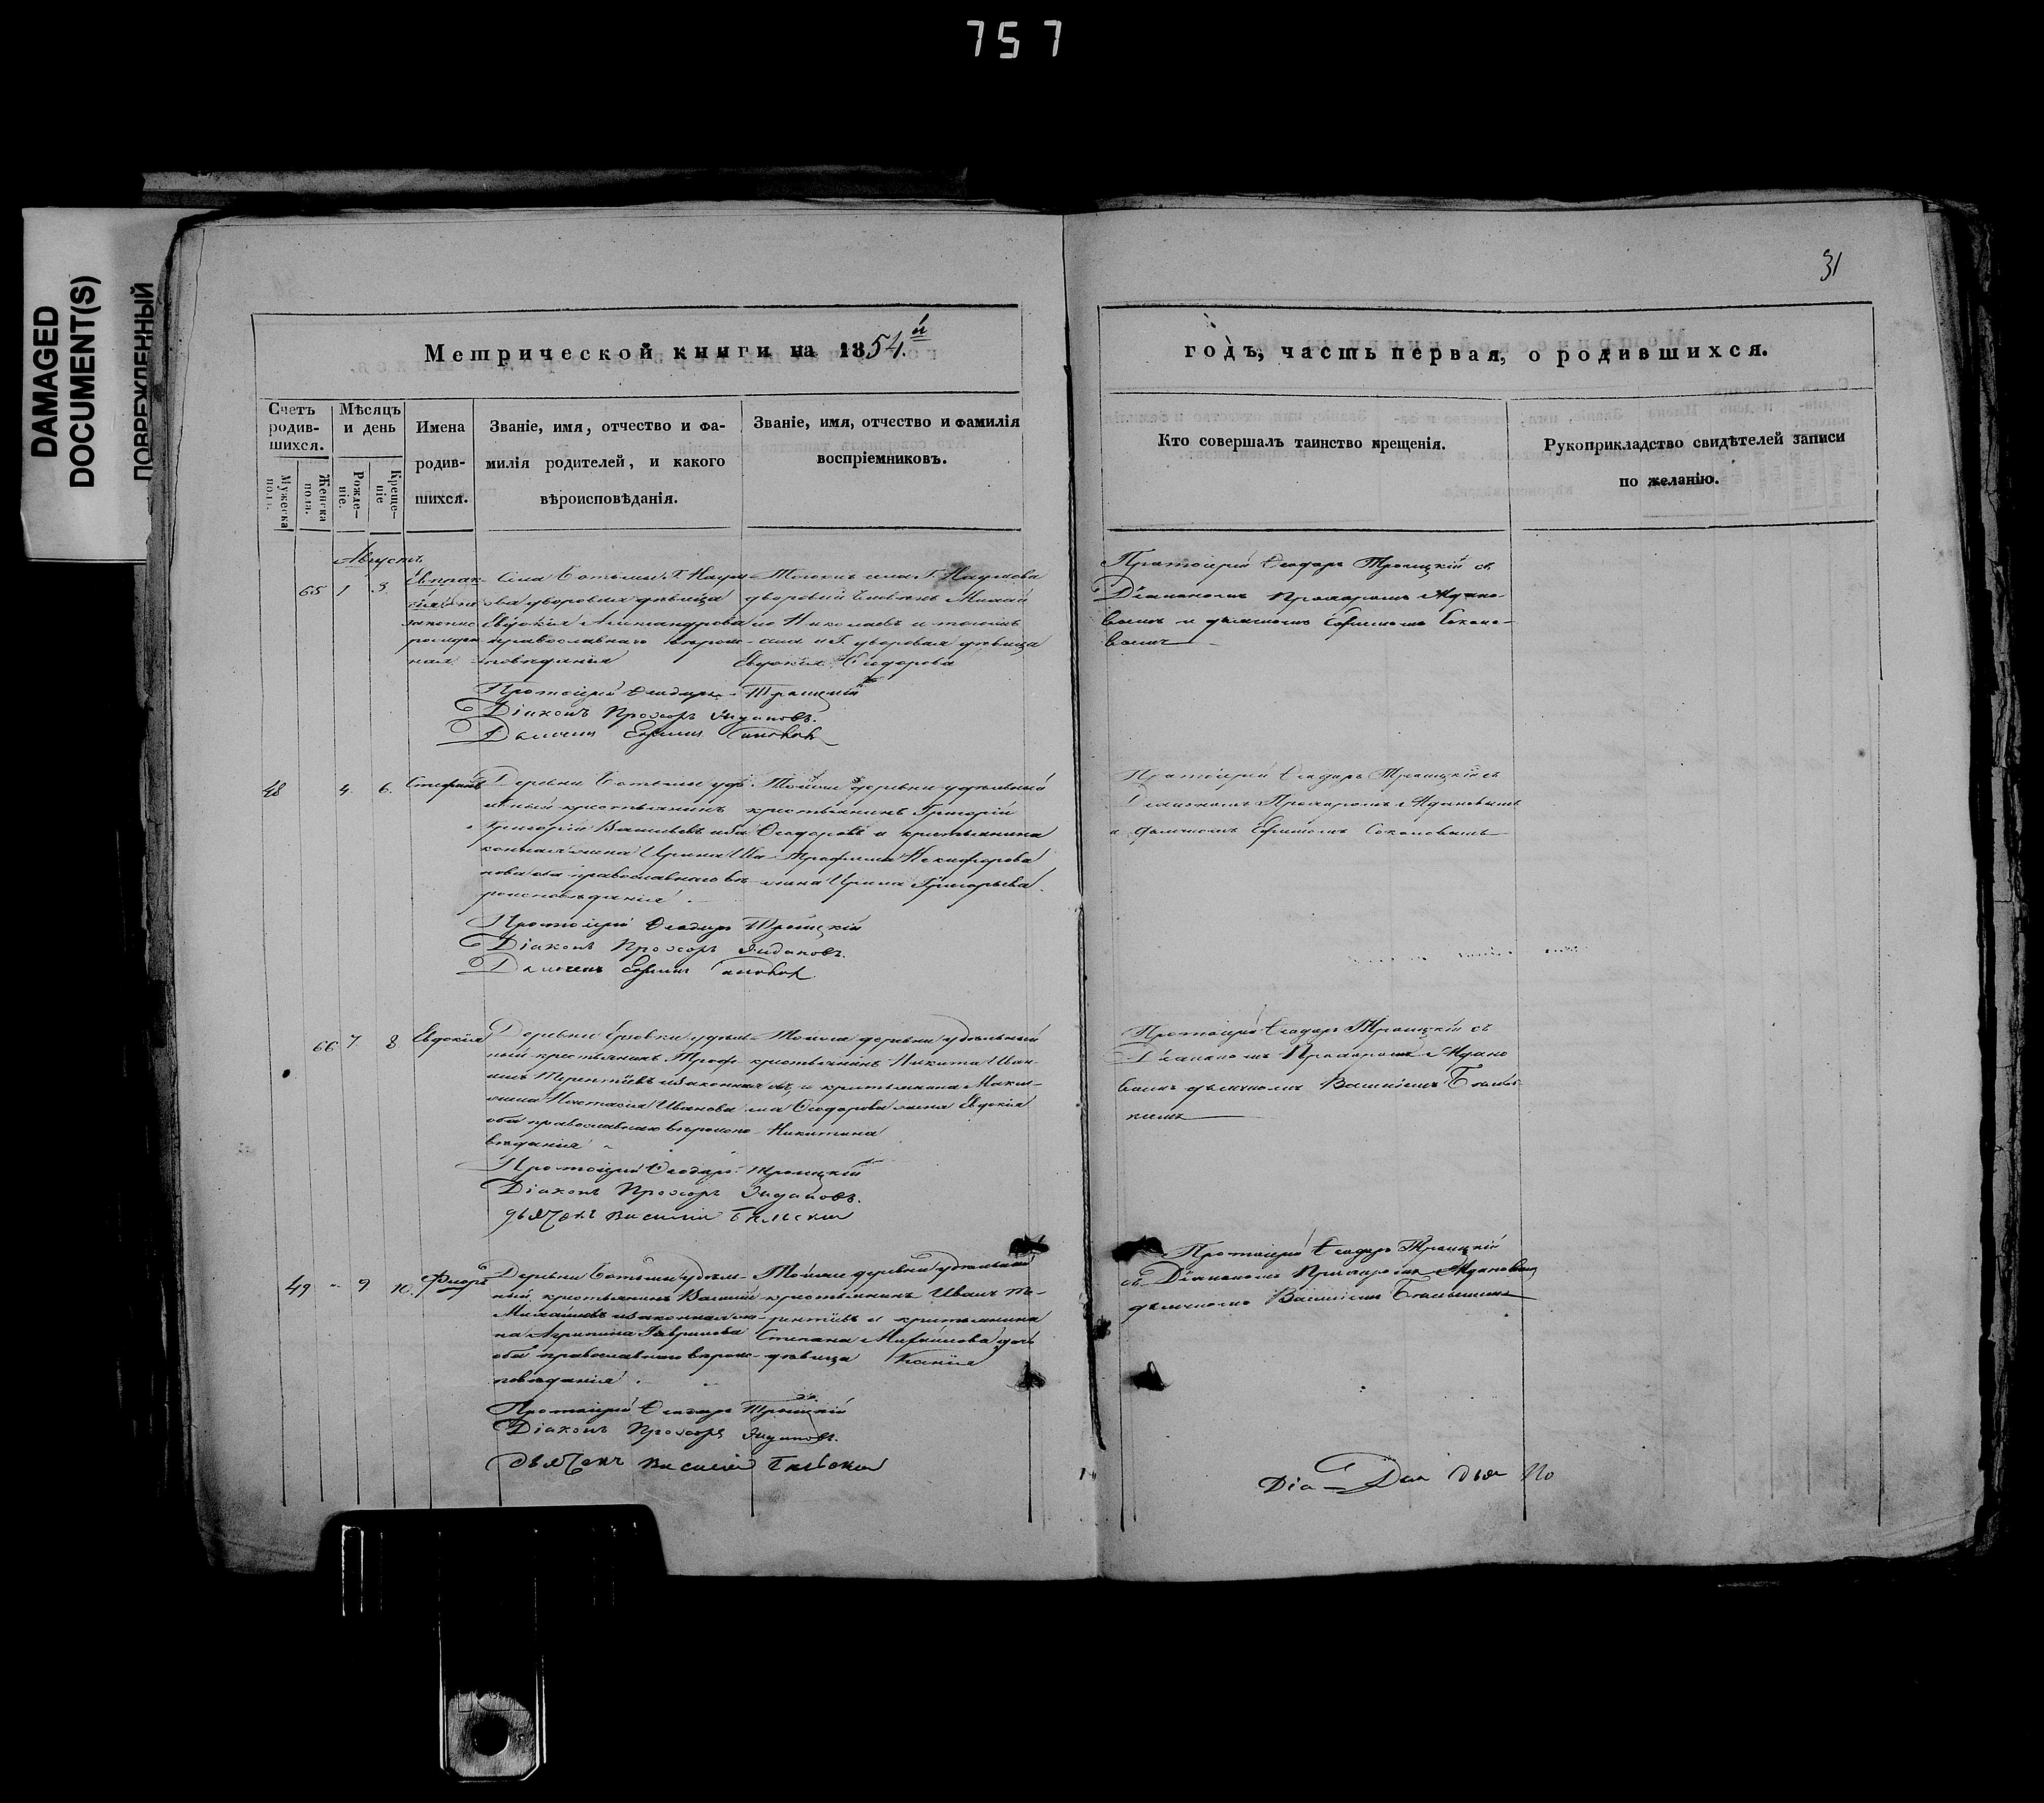 757
DAMAGED
DOCUMENT(S)
ПОВРЕЖДЕННЫЙ
31
Метрической книги на 1854.й
годъ, часть первая, о родившихся.
Счетъ родив-шихся.
Мужеска полъ.
Женска пола.
Мѣсяцъ и день
Рожде-ніе.
Креще-ніе
Имена
родив-
шихся.
Званіе, имя, отчество и фа-
милія родителей, и какого
вѣроисповѣданія.
Званіе, имя, отчество и фамилія
воспріемниковъ.
Кто совершалъ таинство крещенія.
Рукоприкладство свидѣтелей записи
по желанію.
Августъ
65 1 3
Села Г. Наумо-
ва дворовая дѣвица
Евдокія Александрова
православнаго вѣроис-
повѣданія
села Г. Наумова
дворовый человѣкъ Михай
ло Николаевъ и тогожъ
села и Г. дворовая дѣвица
Евдокія Ѳеодорова
Протоіерей Ѳеодоръ Троицкій съ
Діакономъ Прохоромъ Ждано-
вымъ и дьячкомъ Ефимомъ Соколо-
вымъ
Протоіерей Ѳеодоръ Троицкій
Діаконъ Прохоръ Ждановъ.
Дьячекъ Ефимъ Соколовъ
48 4. 6. Стефанъ
Деревни удѣ-
льный крестьянинъ
Григорій Васильевъ иза
конная жена Ирина Ива-
нова оба православнаго вѣ-
роисповѣданія
Тойже деревни удѣльный
крестьянинъ Григорій
Ѳеодоровъ и крестьянина
Трофима Никифорова
жена Ирина Григорьева.
Протоіерей Ѳеодоръ Троицкій съ
Діакономъ Прохоромъ Ждановымъ
и дьячкомъ Ефимомъ Соколовымъ
Протоіерей Ѳеодоръ Троицкій
Діаконъ Прохоръ Ждановъ.
Дьячекъ Ефимъ Соколовъ
66 7 8 Евдокія
Деревни удѣль-
ный крестьянинъ Троф-
имъ Терентіевъ изаконная
жена Настасія Иванова
оба православнаго вѣроиспо-
вѣданія
Тойже деревни удѣльный
крестьянинъ Никита Иван-
овъ и крестьянина Макси-
ма Ѳеодорова жена Евдокія
Никитина
Протоіерей Ѳеодоръ Троицкій съ
Діакономъ Прохоромъ Ждано
вымъ дьячкомъ Василіемъ Бѣльс-
кимъ
Протоіерей Ѳеодоръ Троицкій
Діаконъ Прохоръ Ждановъ.
дьячекъ Василій Бѣльскій
49 9 10. Флоръ
Деревни удѣль-
ный крестьянинъ Василій
Михайловъ изаконная же-
на Агрипина Гаврилова
оба православнаго вѣроис-
повѣданія.
Тойже деревни удѣльный
крестьянинъ Иванъ Те-
рентіевъ и крестьянина
Степана Михайлова дочь
дѣвица Ксенія
Протоіерей Ѳеодоръ Троицкій
съ Діакономъ Прохоромъ Ждановымъ
дьячкомъ Василіемъ Бѣльскимъ
Протоіерей Ѳеодоръ Троицкій
Діаконъ Прохоръ Ждановъ.
дьячекъ Василій Бѣльскій